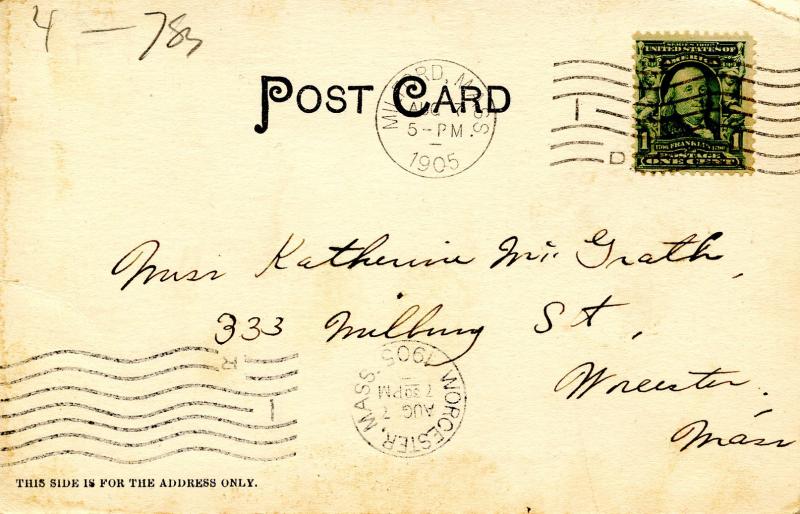 4 — 783
POST CARD
MILFORD, MASS
AUG 7
5 - PM
1905
SERIES 1902
UNITED STATES OF
AMERICA
1 FRANKLIN
POSTAGE 1
ONE CENT
D
Miss Katherine McGrath,
333 Millbury St,
Worcester,
Mass
R
1
WORCESTER, MASS.
AUG 7
7 30 PM
1905
THIS SIDE IS FOR THE ADDRESS ONLY.